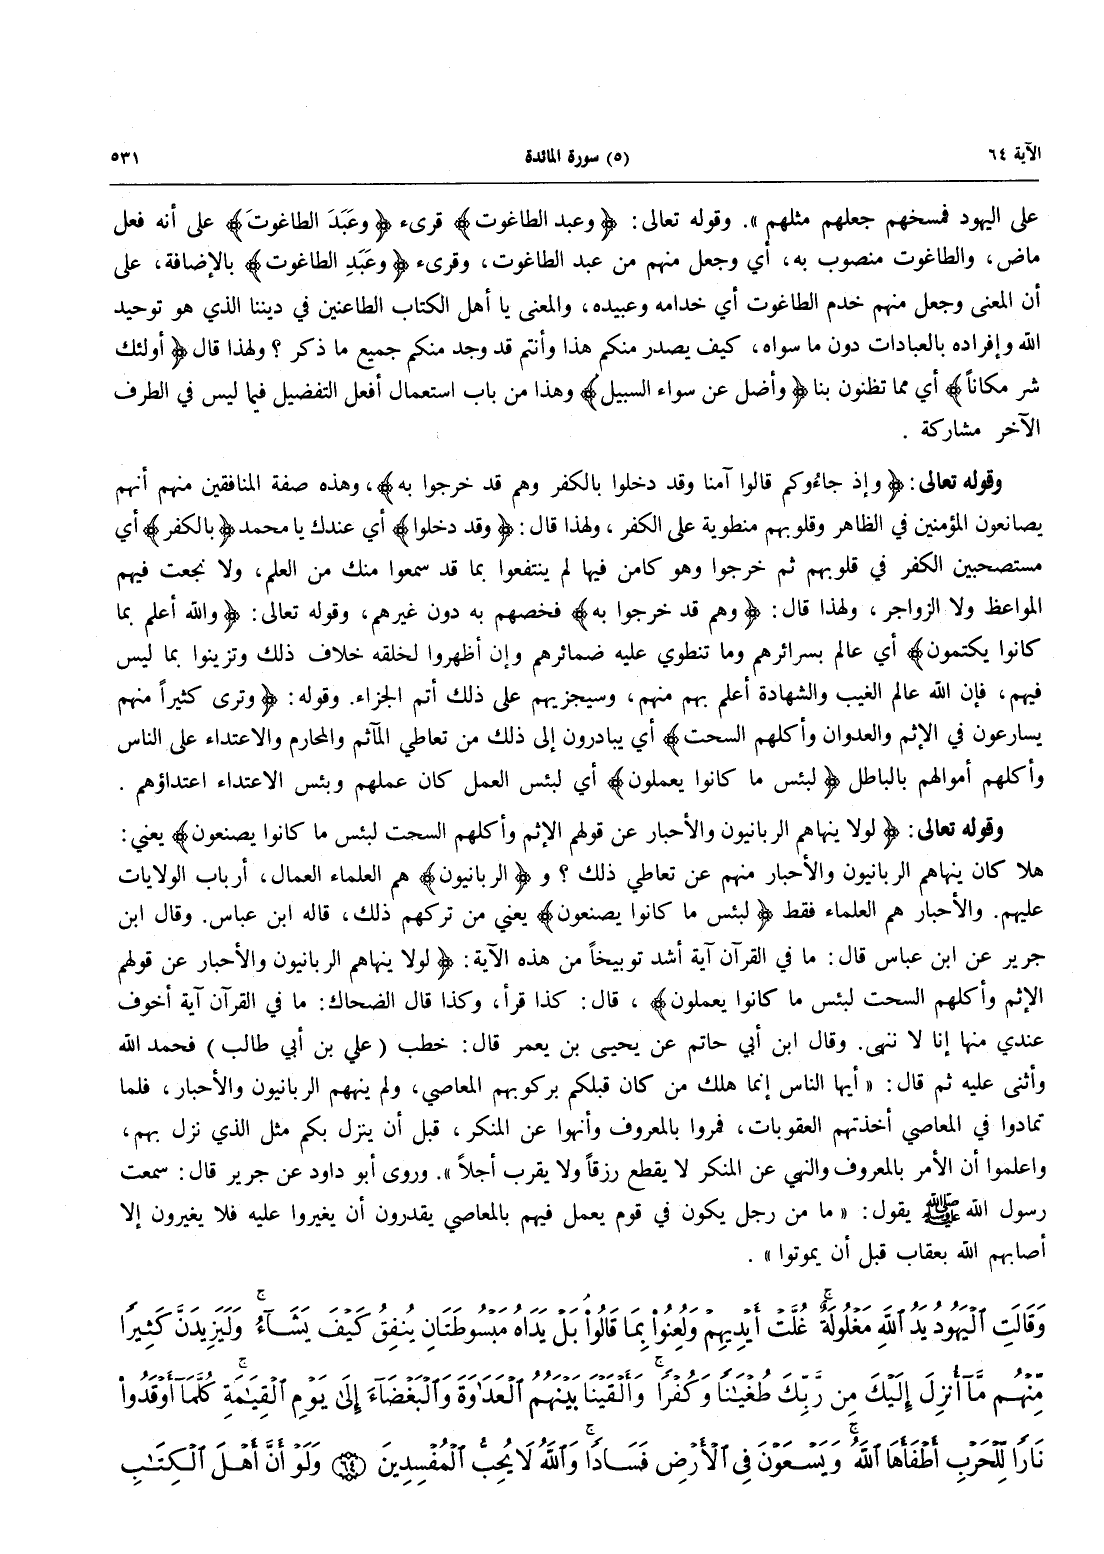 الآية ٦٤ (٥) سورة المائدة ٥٣١
على اليهود فمسخهم جعلهم مثلهم ». وقوله تعالى: ﴿ وعبد الطاغوت﴾ قرىء ﴿ وعَبَدَ الطاغوتَ﴾ على أنه فعل
ماض، والطاغوت منصوب به، أي وجعل منهم من عبد الطاغوت، وقرىء ﴿ وعَبَدِ الطاغوت﴾ بالإضافة، على
أن المعنى وجعل منهم خدم الطاغوت أي خدامه وعبيده، والمعنى يا أهل الكتاب الطاعنين في ديننا الذي هو توحيد
الله وإفراده بالعبادات دون ما سواه، كيف يصدر منكم هذا وأنتم قد وجد منكم جميع ما ذكر ؟ ولهذا قال ﴿ أولئك
شر مكاناً﴾ أي مما تظنون بنا ﴿ وأضل عن سواء السبيل﴾ وهذا من باب استعمال أفعل التفضيل فيما ليس في الطرف
الآخر مشاركة .
وقوله تعالى: ﴿ وإذ جاءوكم قالوا آمنا وقد دخلوا بالكفر وهم قد خرجوا به﴾، وهذه صفة المنافقين منهم أنهم
يصانعون المؤمنين في الظاهر وقلوبهم منطوية على الكفر ، ولهذا قال: ﴿ وقد دخلوا﴾ أي عندك يا محمد ﴿بالكفر﴾ أي
مستصحبين الكفر في قلوبهم ثم خرجوا وهو كامن فيها لم ينتفعوا بما قد سمعوا منك من العلم، ولا نجعت فيهم
المواعظ ولا الزواجر ، ولهذا قال: ﴿ وهم قد خرجوا به﴾ فخصهم به دون غيرهم، وقوله تعالى: ﴿ والله أعلم بما
كانوا يكتمون﴾ أي عالم بسرائرهم وما تنطوي عليه ضمائرهم وإن أظهروا لخلقه خلاف ذلك وتزينوا بما ليس
فيهم، فإن الله عالم الغيب والشهادة أعلم بهم منهم، وسيجزيهم على ذلك أتم الجزاء. وقوله: ﴿ وترى كثيراً منهم
يسارعون في الإثم والعدوان وأكلهم السحت﴾ أي يبادرون إلى ذلك من تعاطي المآثم والمحارم والاعتداء على الناس
وأكلهم أموالهم بالباطل ﴿ لبئس ما كانوا يعملون﴾ أي لبئس العمل كان عملهم وبئس الاعتداء اعتداؤهم .
وقوله تعالى: ﴿ لولا ينهاهم الربانيون والأحبار عن قولهم الإثم وأكلهم السحت لبئس ما كانوا يصنعون﴾ يعني:
هلا كان ينهاهم الربانيون والأحبار منهم عن تعاطي ذلك ؟ و ﴿ الربانيون﴾ هم العلماء العمال، أرباب الولايات
عليهم. والأحبار هم العلماء فقط ﴿ لبئس ما كانوا يصنعون﴾ يعني من تركهم ذلك، قاله ابن عباس. وقال ابن
جرير عن ابن عباس قال: ما في القرآن آية أشد توبيخاً من هذه الآية: ﴿ لولا ينهاهم الربانيون والأحبار عن قولهم
الإثم وأكلهم السحت لبئس ما كانوا يعملون﴾ ، قال: كذا قرأ، وكذا قال الضحاك: ما في القرآن آية أخوف
عندي منها إنا لا ننهى. وقال ابن أبي حاتم عن يحيى بن يعمر قال: خطب ( علي بن أبي طالب ) فحمد الله
وأثنى عليه ثم قال: « أيها الناس إنما هلك من كان قبلكم بركوبهم المعاصي، ولم ينههم الربانيون والأحبار ، فلما
تمادوا في المعاصي أخذتهم العقوبات، فمروا بالمعروف وأنهوا عن المنكر ، قبل أن ينزل بكم مثل الذي نزل بهم،
واعلموا أن الأمر بالمعروف والنهي عن المنكر لا يقطع رزقاً ولا يقرب أجلاً ». وروى أبو داود عن جرير قال: سمعت
رسول الله ﷺ يقول: « ما من رجل يكون في قوم يعمل فيهم بالمعاصي يقدرون أن يغيروا عليه فلا يغيرون إلا
أصابهم الله بعقاب قبل أن يموتوا » .
وَقَالَتِ ٱلْيَهُودُ يَدُ ٱللَّهِ مَغْلُولَةٌ ۚ غُلَّتْ أَيْدِيهِمْ وَلُعِنُوا۟ بِمَا قَالُوا۟ ۘ بَلْ يَدَاهُ مَبْسُوطَتَانِ يُنفِقُ كَيْفَ يَشَآءُ ۚ وَلَيَزِيدَنَّ كَثِيرًا
مِّنْهُم مَّآ أُنزِلَ إِلَيْكَ مِن رَّبِّكَ طُغْيَـٰنًا وَكُفْرًا ۚ وَأَلْقَيْنَا بَيْنَهُمُ ٱلْعَدَٰوَةَ وَٱلْبَغْضَآءَ إِلَىٰ يَوْمِ ٱلْقِيَـٰمَةِ ۚ كُلَّمَآ أَوْقَدُوا۟
نَارًا لِّلْحَرْبِ أَطْفَأَهَا ٱللَّهُ ۚ وَيَسْعَوْنَ فِى ٱلْأَرْضِ فَسَادًا ۚ وَٱللَّهُ لَا يُحِبُّ ٱلْمُفْسِدِينَ ﴿٦٤﴾ وَلَوْ أَنَّ أَهْلَ ٱلْكِتَـٰبِ